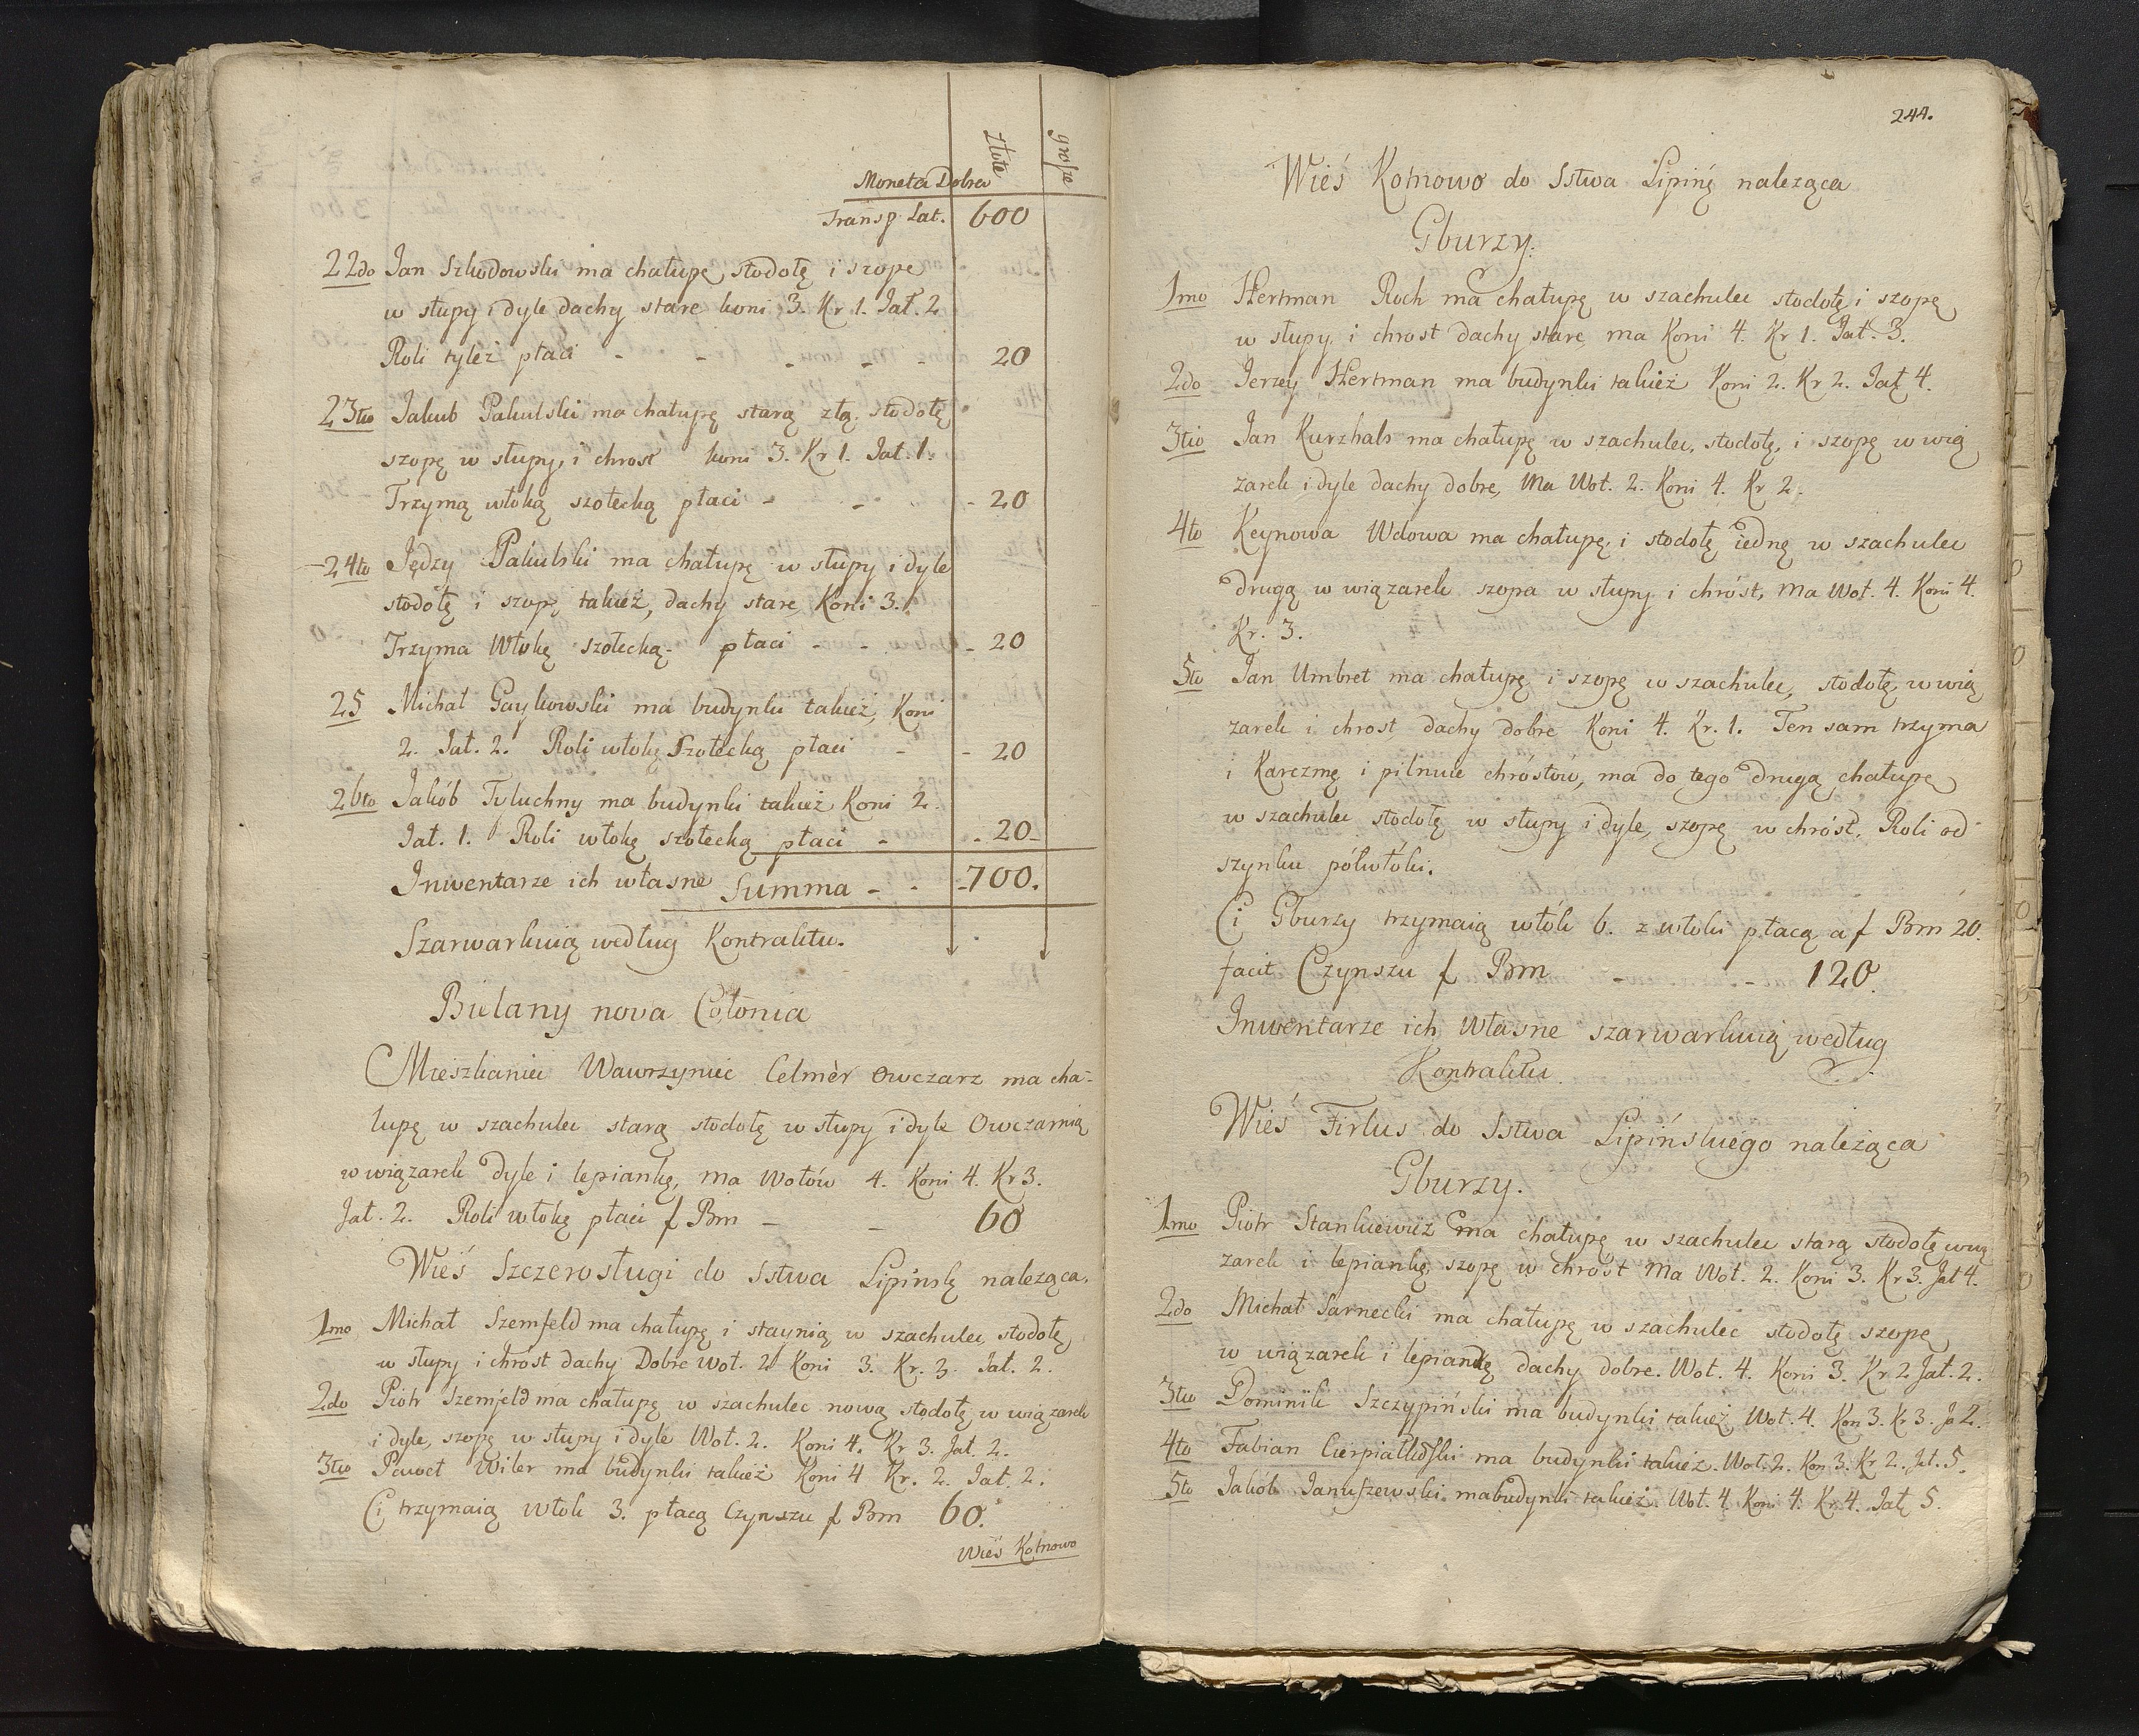 Złote
grosze
Moneta Dobra
Transp. Lat. 600
22do Jan Szkodowski ma chałupę, stodołę i szopę
w słupy i dyle dachy stare koni 3. Kr 1. Jał. 2
Roli tyleż płaci - - - - - 20
23tio Jakub Pakulski ma chałupę starą złą. stodołę
szopę w słupy, i chrost koni 3. Kr 1. Jał. 1.
Trzymą włoką szołecką płaci - - - 20
24to Jędzy Pakulski ma chałupę w słupy i dyle
stodołę i szopę takież, dachy stare, Koni 3.
Trzyma Włokę szołecką. płaci - - - 20
25 Michał Gaykowski ma budynki takież, Koni
2. Jał. 2. Roli włokę Szołecką płaci - - 20
26to Jakób Tyluchny ma budynki takież Koni 2.
Jał. 1. Roli włokę szołecką płaci - - 20 -
Inwentarze ich własne Summa - - - 700.
Szarwarkuią według Kontraktu.
Bielany nova Colonia
Mieszkaniec Wawrzyniec Celmèr Owczarz ma cha-
łupę w szachulec starą stodołę w słupy i dyle Owczarnią
w wiązarek dyle i lepiankę, ma Wołów 4. Koni 4. Kr 3.
Jał. 2. Roli włokę płaci f Brn - - 60
Wieś Szczerosługi do Sstwa Lipińsk̄ę nalezącą.
1mo Michał Szemfeld ma chałupę i staynią w szachulec, stodołę
w słupy i chrost dachy Dobre Woł. 2 Koni 3. Kr. 3. Jał. 2.
2do Piotr Szemfeld ma chałupę w szachulec nową stodołę w wiązarek
i dyle, szopę w słupy i dyle Woł. 2. Koni 4. Kr 3. Jał. 2.
3tio Paweł Witer ma budynki takież Koni 4 Kr. 2. Jał. 2.
Ci trzymaią Włok 3. płacą Czynszu f Brn 60.
Wieś Kotnowo
244.
Wieś Kotnowo do Sstwa Lipinę nalezącа
Gburzy.
1mo Hertman Roch ma chałupę w szachulec stodołę i szopę
w słupy i chrost dachy stare, ma Koni 4. Kr 1. Jał. 3.
2do Jerzy Hertman ma budynki takież Koni 2. Kr 2. Jał 4.
3tio Jan Kurzhals ma chałupę w szachulec, stodołę, i szopę w wią
zarek i dyle dachy dobre, Ma Woł. 2. Koni 4. Kr 2.
4to Keynowa Wdowa ma chałupę, i stodołę iednę w szachulec
drugą w wiązarek szopa w słupy i chróst, Ma Woł. 4. Koni 4.
Kr. 3.
5to Jan Umbret ma chałupę i szopę w szachulec, stodołę w wią
zarek i chrost dachy dobre Koni 4. Kr. 1. Ten sam trzyma
i Karczmę i pilnuie chróstów, ma do tego drugą chałupę
w szachulec stodołę w słupy i dyle, szopę w chróst, Roli od
szynku półwłóki.
Ci Gburzy trzymaią włók 6. z włoki płacą a f Brn 20.
facit Czynszu f Brn - - 120.
Inwentarze ich Własne szarwarkuią według
Kontraktu.
Wieś Firlus do Sstwa Lipińskiego nalezącа
Gburzy.
1mo Piotr Stankiewicz ma chałupę w szachulec starą stodołę w wią
zarek i lepiankę, szopę w chróst Ma Woł. 2. Koni 3. Kr 3. Jał 4.
2do Michał Sarnecki ma chałupę w szachulec stodołę szopę
w wiązarek i lepiankę dachy dobre. Woł. 4. Koni 3. Kr 2 Jał. 2.
3tio Dominik Szczypiński ma budynki takież Woł. 4. Kon 3. Kr 3. Ja 2.
4to Fabian Cierpiałkoski ma budynki takież. Woł. 2. Kon 3. Kr 2. Jał. 5.
5to Jakób Januszewski ma budynki takież. Woł. 4 Koni 4. Kr 4. Jał 5.